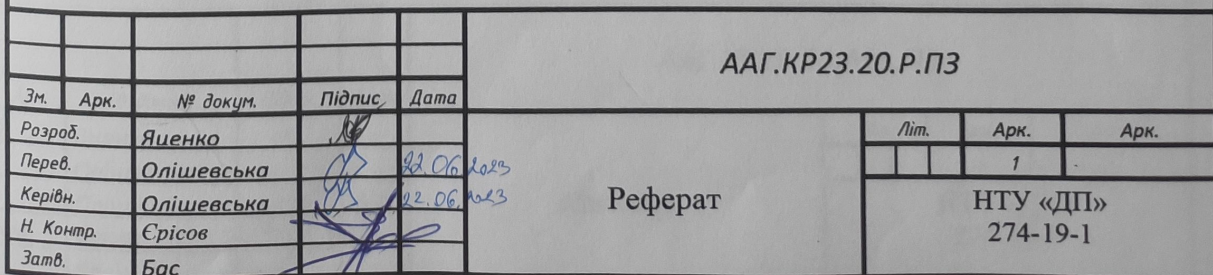 ААГ.КР23.20.Р.ПЗ
Зм. Арк. № докум. Підпис Дата
Розроб. Яценко
Перев. Олішевська 22.06.2023
Керівн. Олішевська 22.06.2023
Н. Контр. Єрісов
Затв. Бас
Реферат
Літ. Арк. Арк.
1
НТУ «ДП»
274-19-1